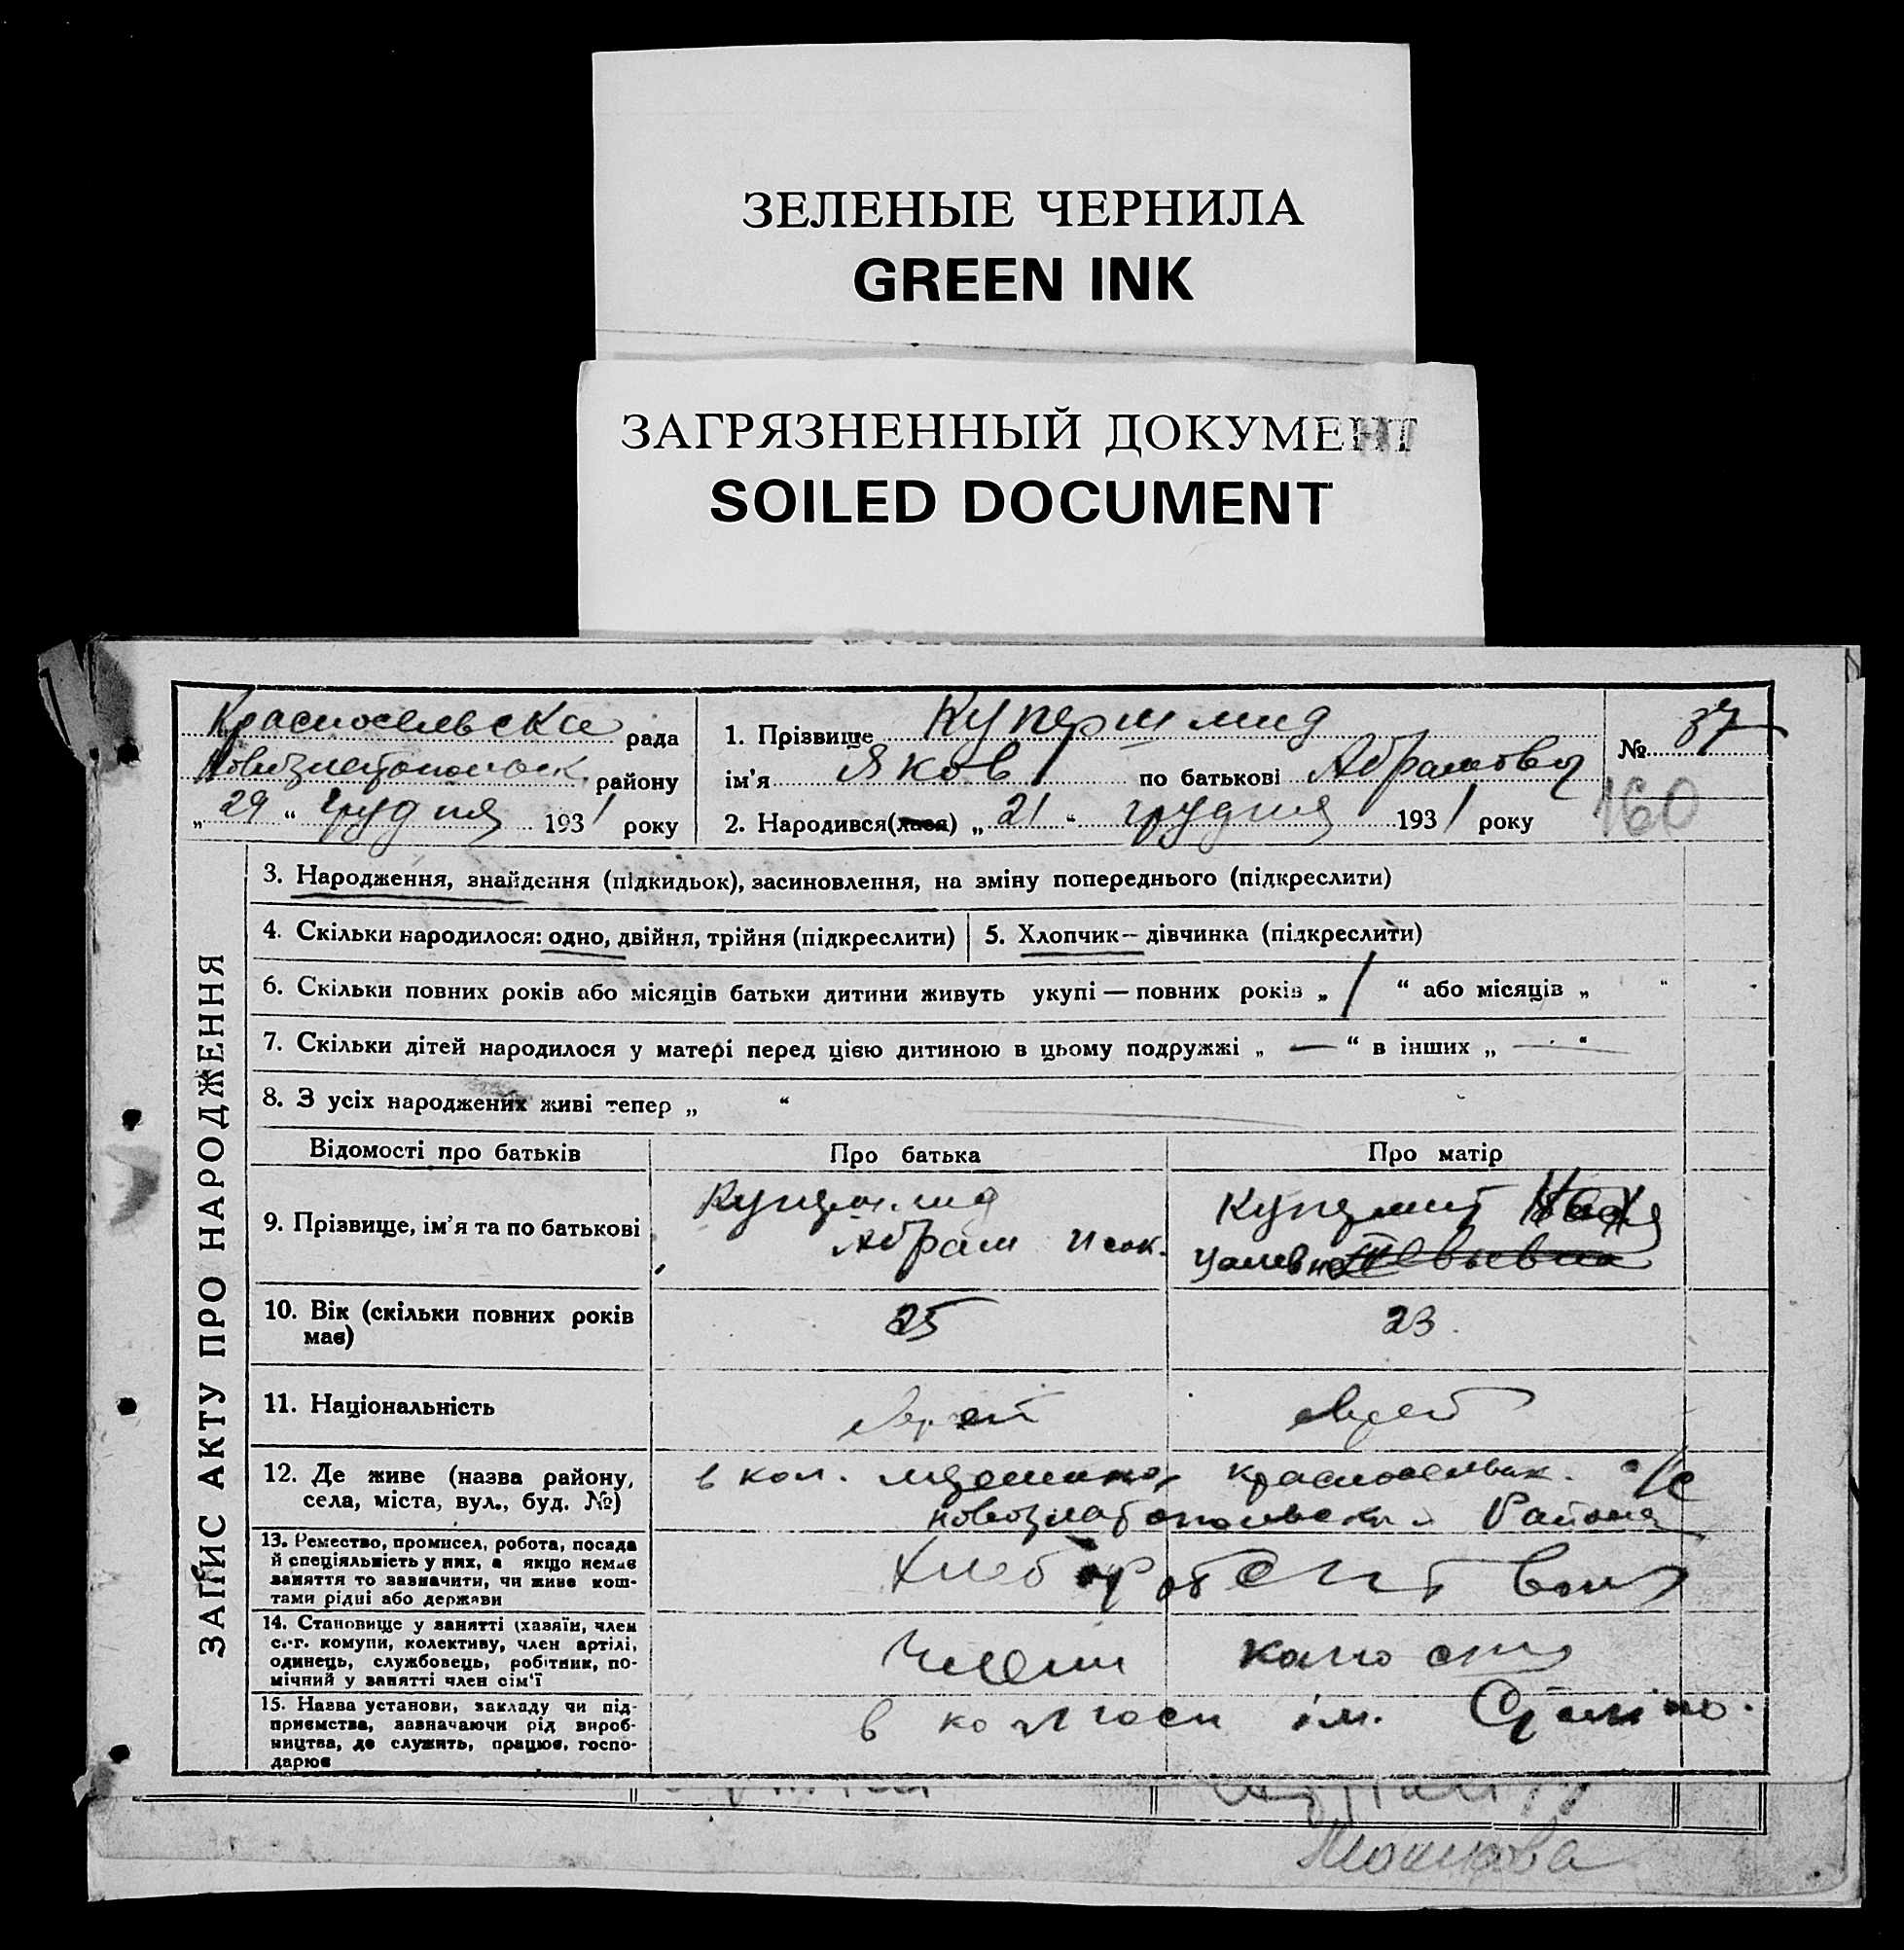 ЗЕЛЕНЫЕ ЧЕРНИЛА
GREEN INK
ЗАГРЯЗНЕННЫЙ ДОКУМЕНТ
SOILED DOCUMENT
Красносельска рада
Новозлатопольск. району
„ 29 “ грудня 1931 року
1. Прізвище Купершмид
ім’я Яков по батькові Абрамович
2. Народився(лася) „ 21 “ грудня 1931 року
№ 37
160
ЗАПИС АКТУ ПРО НАРОДЖЕННЯ
3. Народження, знайдення (підкидьок), засиновлення, на зміну попереднього (підкреслити)
4. Скільки народилося: одно, двійня, трійня (підкреслити)
5. Хлопчик — дівчинка (підкреслити)
6. Скільки повних років або місяців батьки дитини живуть укупі — повних років „ 1 “ або місяців „ “
7. Скільки дітей народилося у матері перед цією дитиною в цьому подружжі „ — “ в інших „ — “
8. З усіх народжених живі тепер „ “
Відомості про батьків
Про батька
Про матір
9. Прізвище, ім’я та по батькові
Абрам Исак.
10. Вік (скільки повних років
має)
25
23.
11. Національність
еврей
еврей
12. Де живе (назва району,
села, міста, вул., буд. №)
в кол. красносельск. с/с
новозлатопольски Района
13. Ремество, промисел, робота, посада
й спеціяльність у них, а якщо немає
заняття то зазначити, чи живе кош-
тами рідні або держави
14. Становище у занятті (хазяїн, член
с.-г. комуни, колективу, член артілі,
одинець, службовець, робітник, по-
мічний у занятті член сім’ї
Члени
15. Назва установи, закладу чи під-
приємства, зазначаючи рід вироб-
ництва, де служить, працює, госпо-
дарює
в колгоспи ім. Сталіно.